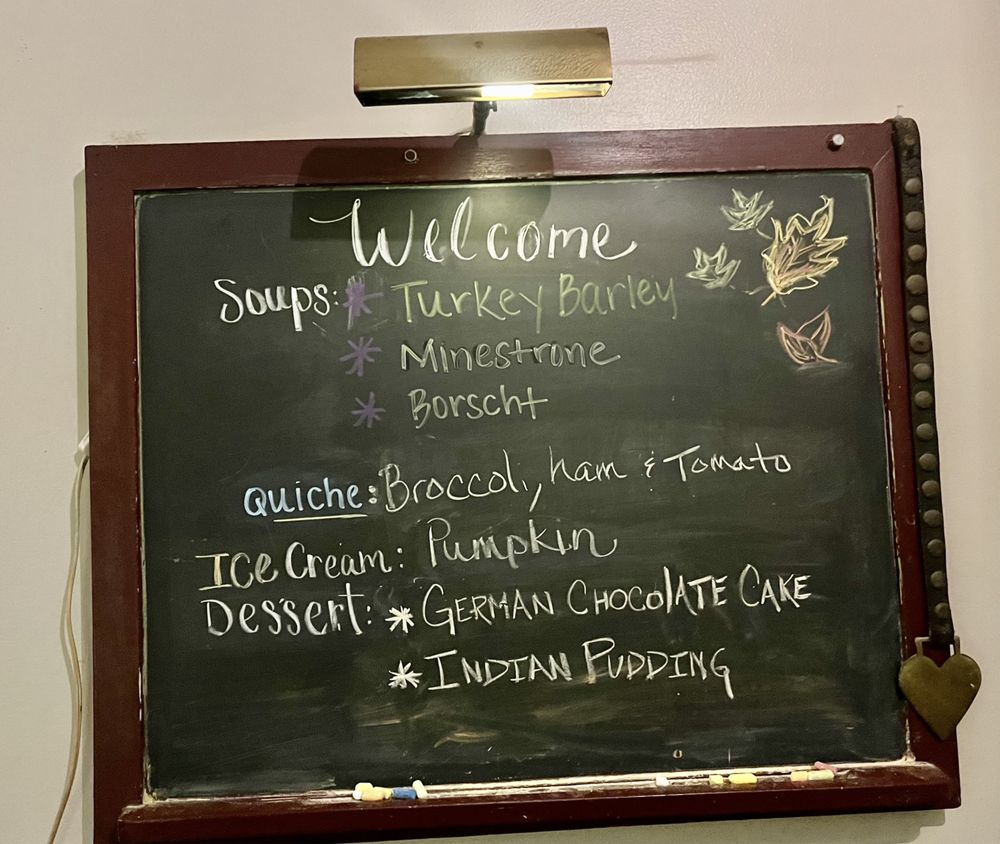 Welcome
Soups: * Turkey Barley
* Minestrone
* Borscht
Quiche: Broccoli, ham & Tomato
Ice Cream: Pumpkin
Dessert: * GERMAN CHOCOlATE CAKE
* INDIAN PUDDING